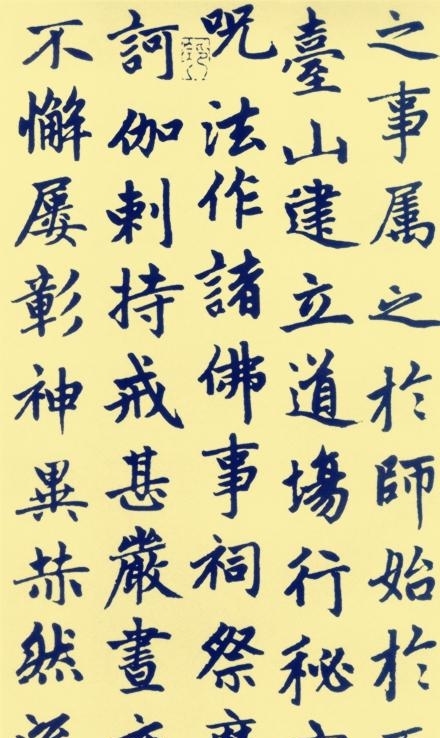 之事属之於師始於
臺山建立道場行秘
呪法作諸佛事祠祭
訶伽剌持戒甚嚴晝
不懈屢彰神異赫然